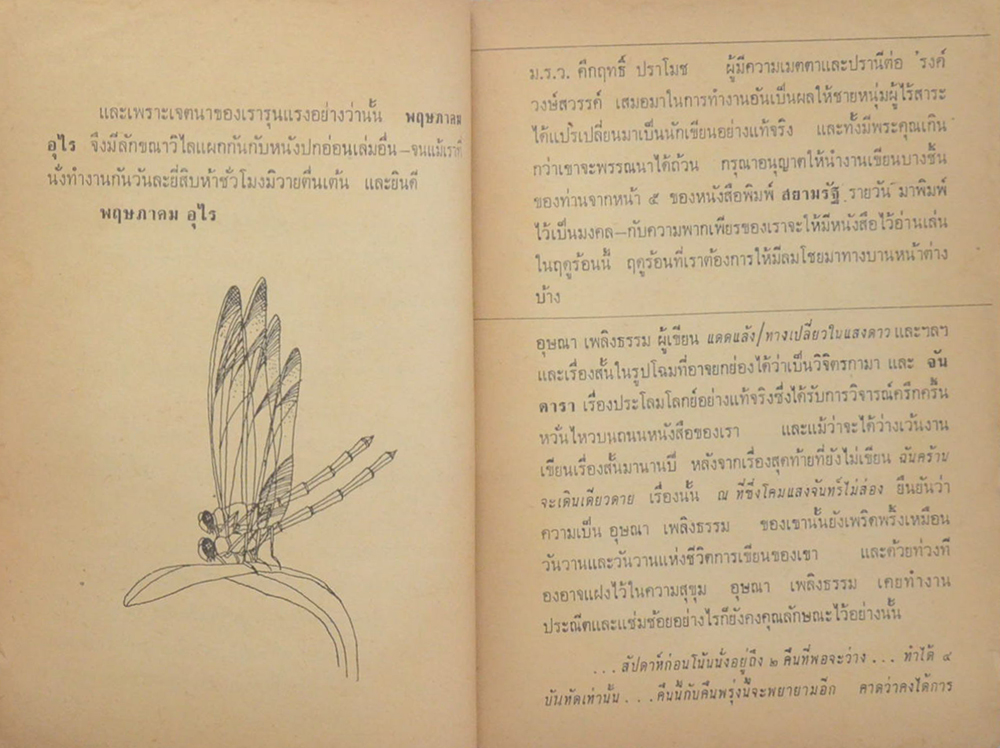 และเพราะเจตนาของเรารุนแรงอย่างว่านั้น พฤษภาคม
อุไร จึงมีลักขณาวิไลแผกกันกับหนังปกอ่อนเล่มอื่น—จนแม้เราที่
นั่งทำงานกันวันละยี่สิบห้าชั่วโมงมิวายตื่นเต้น และยินดี
พฤษภาคม อุไร
ม.ร.ว. คึกฤทธิ์ ปราโมช ผู้มีความเมตตาและปรานีต่อ 'รงค์
วงษ์สวรรค์ เสมอมาในการทำงานอันเป็นผลให้ชายหนุ่มผู้ไร้สาระ
ได้แปรเปลี่ยนมาเป็นนักเขียนอย่างแท้จริง และทั้งมีพระคุณเกิน
กว่าเขาจะพรรณนาได้ถ้วน กรุณาอนุญาตให้นำงานเขียนบางชิ้น
ของท่านจากหน้า ๕ ของหนังสือพิมพ์ สยามรัฐ รายวัน มาพิมพ์
ไว้เป็นมงคล—กับความพากเพียรของเราจะให้มีหนังสือไว้อ่านเล่น
ในฤดูร้อนนี้ ฤดูร้อนที่เราต้องการให้มีลมโชยมาทางบานหน้าต่าง
บ้าง
อุษณา เพลิงธรรม ผู้เขียน แดดแล้ง/ทางเปลี่ยวในแสงดาว และฯลฯ
และเรื่องสั้นในรูปโฉมที่อาจยกย่องได้ว่าเป็นวิจิตรกามา และ จัน
ดารา เรื่องประโลมโลกย์อย่างแท้จริงซึ่งได้รับการวิจารณ์ครึกครื้น
หวั่นไหวบนถนนหนังสือของเรา และแม้ว่าจะได้ว่างเว้นงาน
เขียนเรื่องสั้นมานานปี หลังจากเรื่องสุดท้ายที่ยังไม่เขียน ฉันคร้าน
จะเดินเดียวดาย เรื่องนั้น ณ ที่ซึ่งโคมแสงจันทร์ไม่ส่อง ยืนยันว่า
ความเป็น อุษณา เพลิงธรรม ของเขานั้นยังเพริดพริ้งเหมือน
วันวานและวันวานแห่งชีวิตการเขียนของเขา และด้วยท่วงที
องอาจแฝงไว้ในความสุขุม อุษณา เพลิงธรรม เคยทำงาน
ประณีตและแช่มช้อยอย่างไรก็ยังคงคุณลักษณะไว้อย่างนั้น
...สัปดาห์ก่อนโน้นนั่งอยู่ถึง ๒ คืนที่พอจะว่าง... ทำได้ ๔
บันทัดเท่านั้น...คืนนี้กับคืนพรุ่งนี้จะพยายามอีก คาดว่าคงได้การ